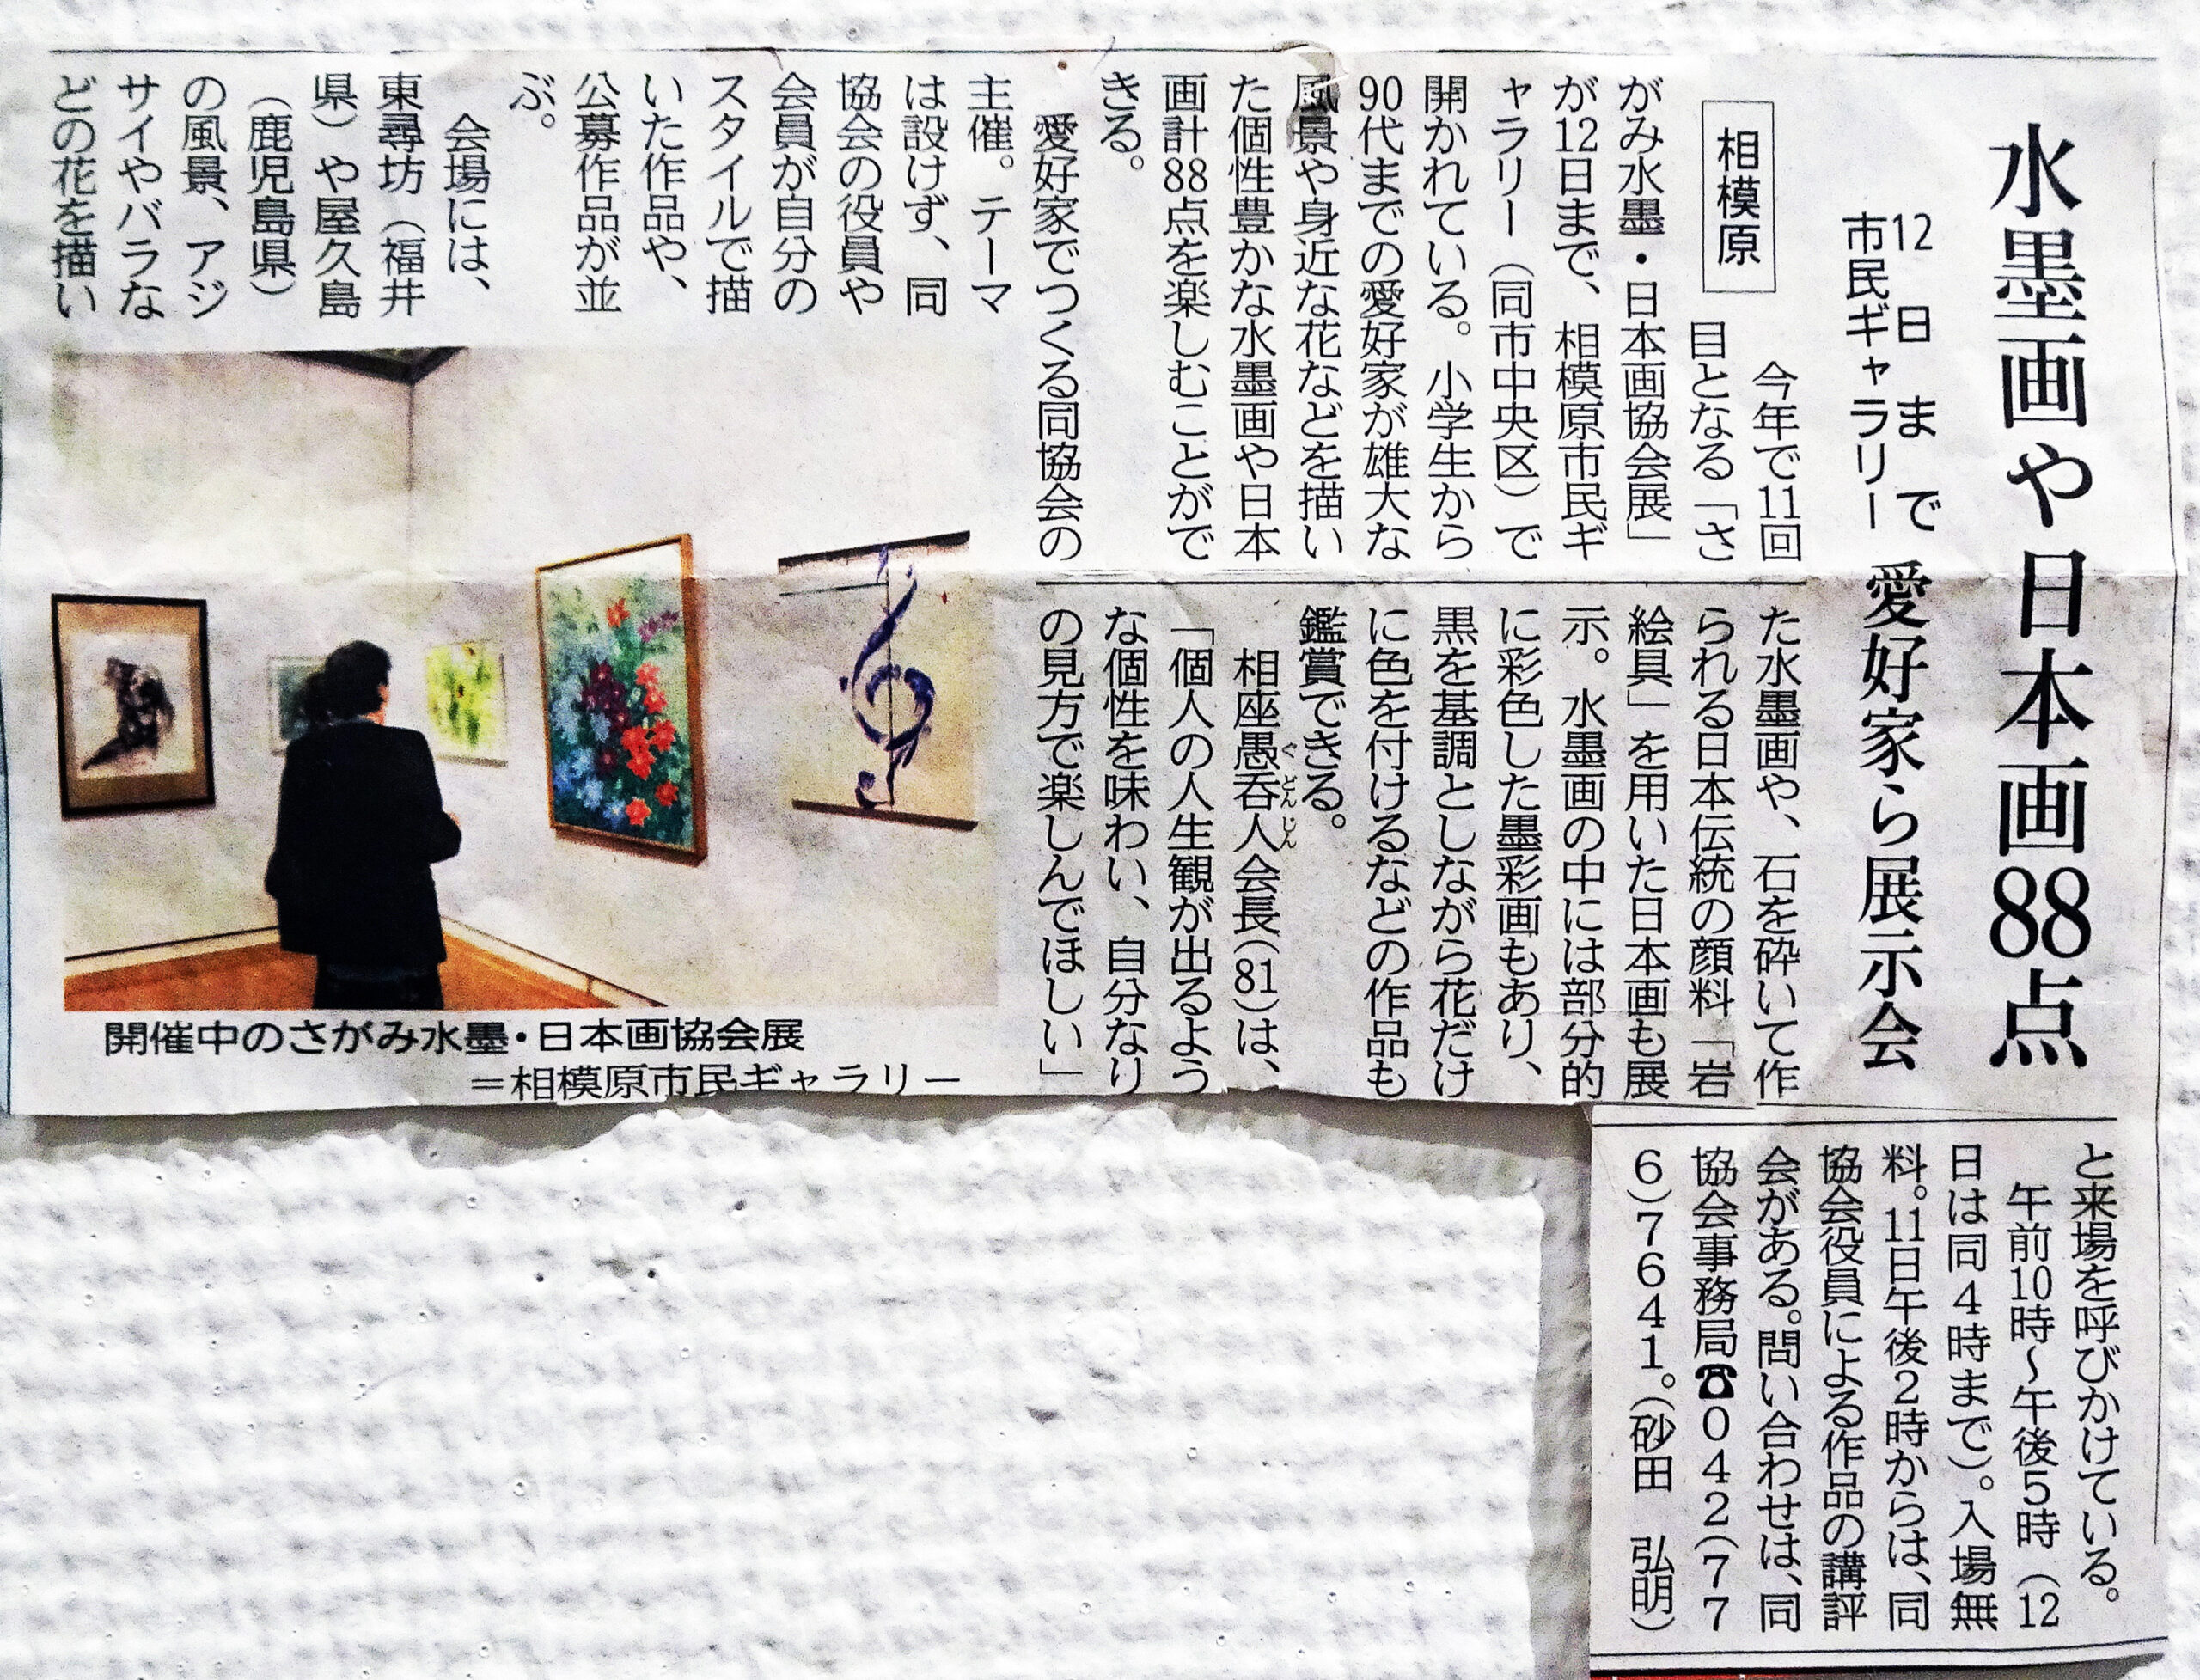 水墨画や日本画88点
12日まで
市民ギャラリー
愛好家ら展示会
相模原
今年で11回
目となる「さ
がみ水墨・日本画協会展」
が12日まで、相模原市民ギ
ャラリー（同市中央区）で
開かれている。小学生から
90代までの愛好家が雄大な
風景や身近な花などを描い
た個性豊かな水墨画や日本
画計88点を楽しむことがで
きる。
愛好家でつくる同協会の
主催。テーマ
は設けず、同
協会の役員や
会員が自分の
スタイルで描
いた作品や、
公募作品が並
ぶ。
会場には、
東尋坊（福井
県）や屋久島
（鹿児島県）
の風景、アジ
サイやバラな
どの花を描い
た水墨画や、石を砕いて作
られる日本伝統の顔料「岩
絵具」を用いた日本画も展
示。水墨画の中には部分的
に彩色した墨彩画もあり、
黒を基調としながら花だけ
に色を付けるなどの作品も
鑑賞できる。
相座愚呑人会長(81)は、
ぐどんじん
「個人の人生観が出るよう
な個性を味わい、自分なり
の見方で楽しんでほしい」
と来場を呼びかけている。
午前10時～午後5時（12
日は同4時まで）。入場無
料。11日午後2時からは、同
協会役員による作品の講評
会がある。問い合わせは、同
協会事務局☎042(77
6)7641。（砂田　弘明）
開催中のさがみ水墨・日本画協会展
＝相模原市民ギャラリー